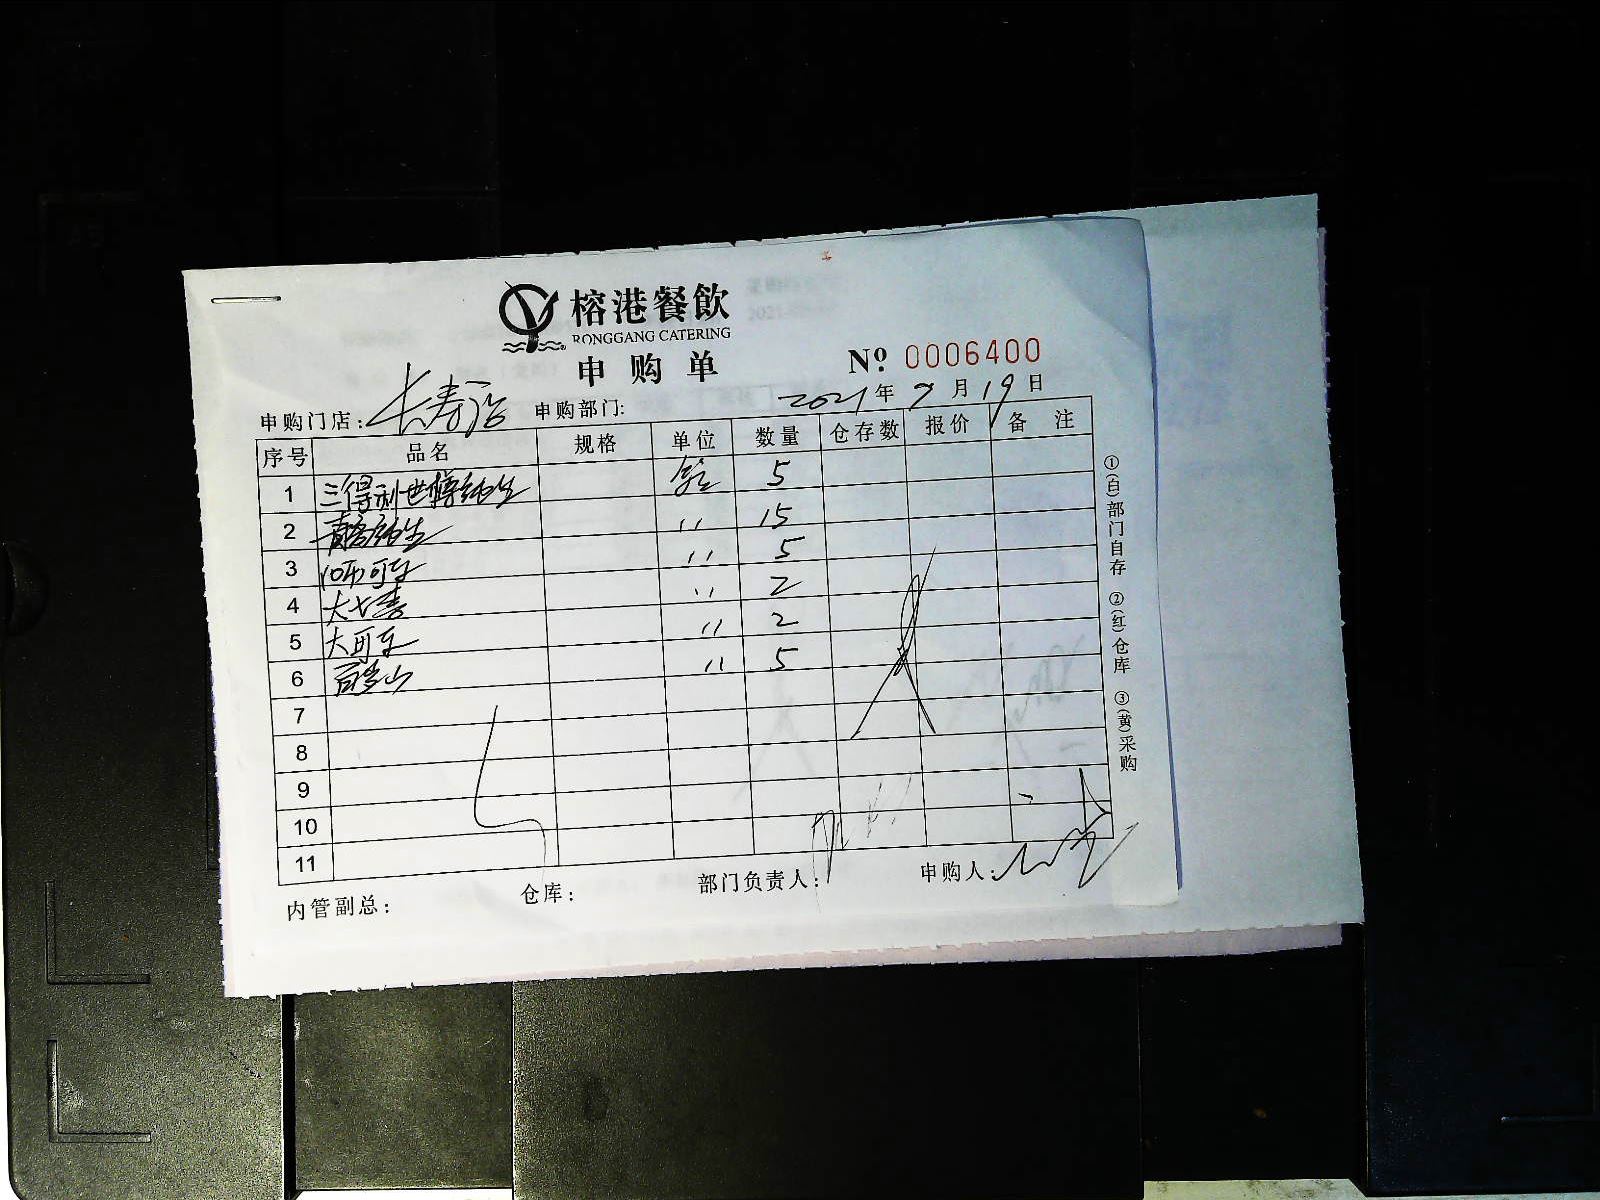 榕港餐飲
RONGGANG CATERING
申购单
№ 0006400
申购门店: 长寿 申购部门: 2021年7月19日
序号 品名 规格 单位 数量 仓存数 报价 备注
1 三得利世博纯生 5
2 纯生 〃 15
3 听可乐 〃 5
4 大七喜 〃 2
5 大可乐 〃 2
6 百岁山 〃 5
7
8
9
10
11
内管副总: 仓库: 部门负责人: 申购人:
①(白)部门自存 ②(红)仓库 ③(黄)采购